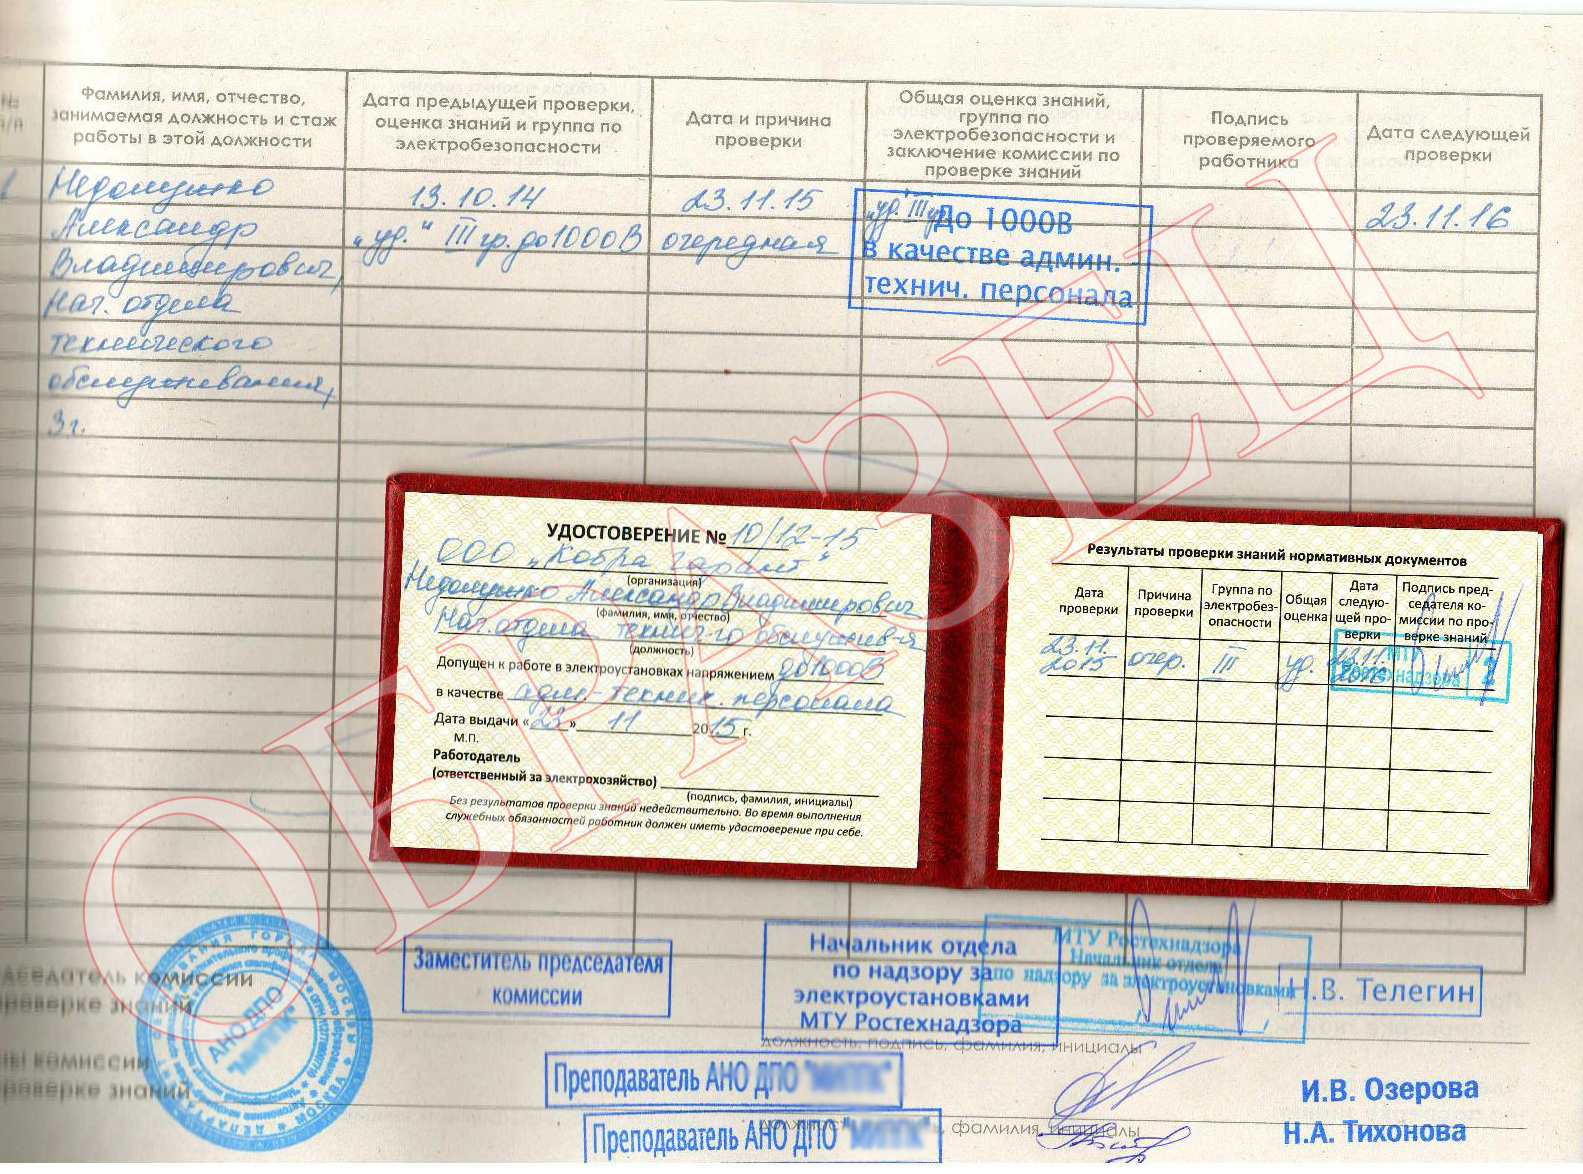 № п/п
Фамилия, имя, отчество, занимаемая должность и стаж работы в этой должности
Дата предыдущей проверки, оценка знаний и группа по электробезопасности
Дата и причина проверки
Общая оценка знаний, группа по электробезопасности и заключение комиссии по проверке знаний
Подпись проверяемого работника
Дата следующей проверки
1
Недолужко
Александр
Владимирович,
Нач. отдела
технического
обслуживания,
3г.
13.10.14
„уд.“ III гр. до 1000В
23.11.15
очередная
„уд." III гр.
До 1000В
в качестве админ. -
технич. персонала
23.11.16
ОБРАЗЕЦ
УДОСТОВЕРЕНИЕ № 10/12-15
ООО „Кобра Гарант“
(организация)
Недолужко Александр Владимирович
(фамилия, имя, отчество)
Нач. отдела технич-го обслужив-я
(должность)
Допущен к работе в электроустановках напряжением до 1000В
в качестве адм.-технич. персонала
Дата выдачи «23» 11 2015 г.
М.П.
Работодатель
(ответственный за электрохозяйство)
(подпись, фамилия, инициалы)
Без результатов проверки знаний недействительно. Во время выполнения
служебных обязанностей работник должен иметь удостоверение при себе.
Результаты проверки знаний нормативных документов
Дата проверки
Причина проверки
Группа по электробез-опасности
Общая оценка
Дата следую-щей про-верки
Подпись пред-седателя ко-миссии по про-верке знаний
23.11.2015
очер.
III
уд.
23.11.2016
МТУ
Ростехнадзора
председатель комиссии
проверке знаний
Заместитель председателя
комиссии
Начальник отдела
по надзору за
электроустановками
МТУ Ростехнадзора
МТУ Ростехнадзора
Начальник отдела
по надзору за электроустановками
Н.В. Телегин
должность, подпись, фамилия, инициалы
АНО ДПО
члены комиссии
проверке знаний
Преподаватель АНО ДПО
И.В. Озерова
Преподаватель АНО ДПО
фамилия, инициалы
Н.А. Тихонова